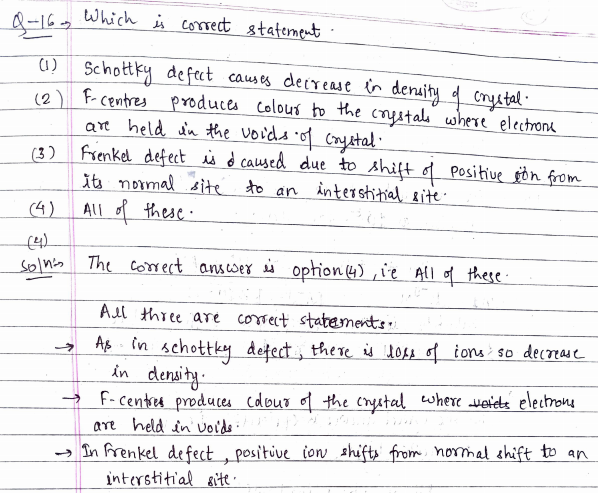 Q-16→ Which is correct statement.
(1) Schottky defect causes decrease in density of crystal.
(2) F-centres produces colour to the crystals where electrons
are held in the voids of crystal.
(3) Frenkel defect is caused due to shift of positive ion from
its normal site to an interstitial site.
(4) All of these.
(4)
Soln→ The correct answer is option(4), i.e All of these.
All three are correct statements.
→ As in schottky defect, there is loss of ions so decrease
in density.
→ F-centres produces colour of the crystal where voids electrons
are held in voids.
→ In Frenkel defect, positive ion shifts from normal shift to an
interstitial site.